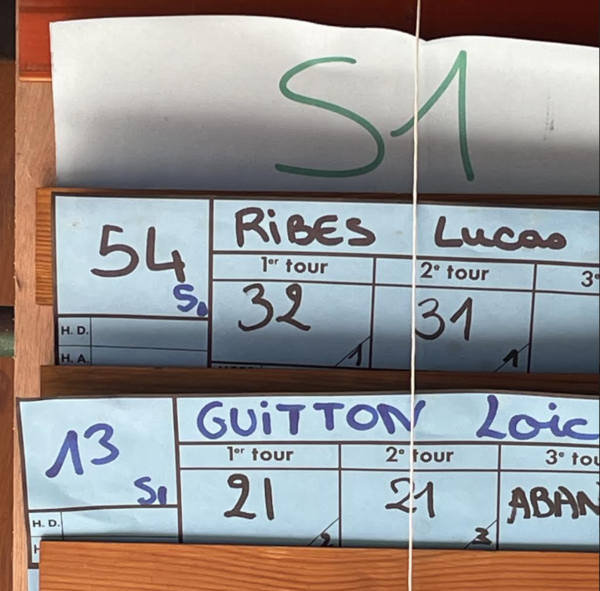 S1
54 S1
RiBES Lucas
1er tour 2e tour 3e
32 31
1 1
H. D.
H. A.
13 S1
GUiTTON Loic
1er tour 2e tour 3e tou
21 21 ABAN
2 3
H. D.
H